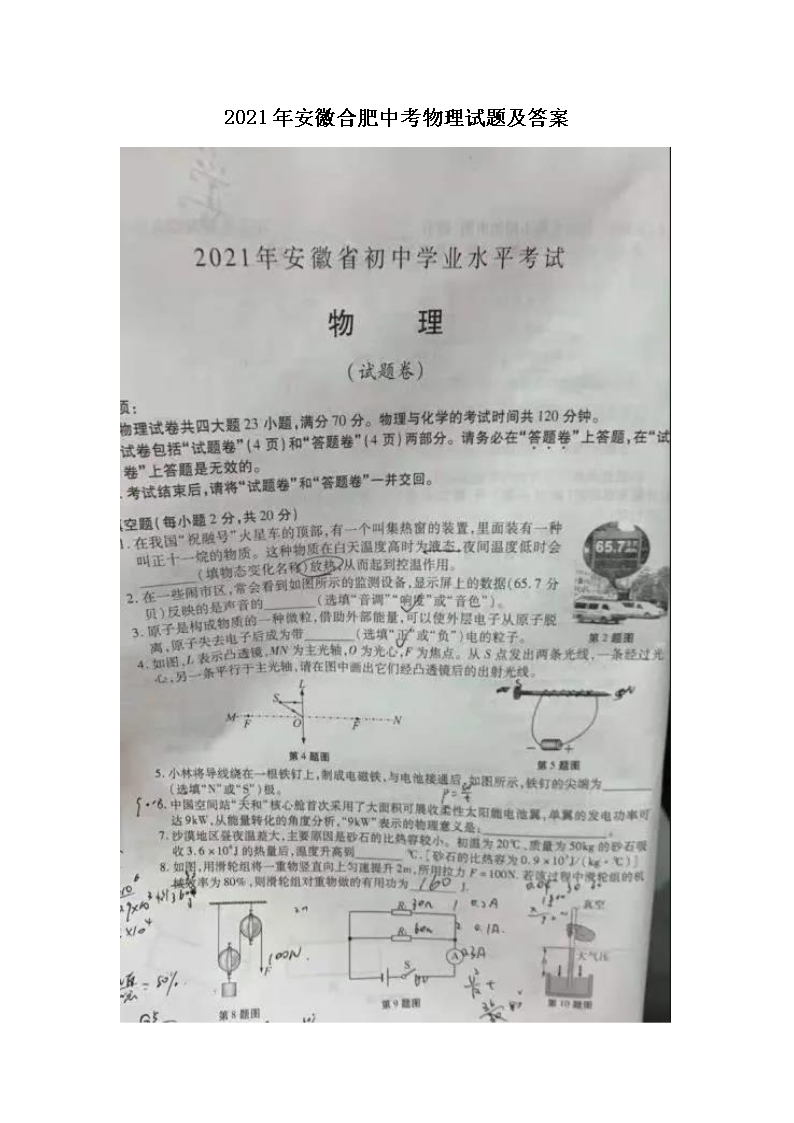 2021年安徽合肥中考物理试题及答案
2021年安徽省初中学业水平考试
物 理
(试题卷)
项:
物理试卷共四大题23小题,满分70分。物理与化学的考试时间共120分钟。
试卷包括“试题卷”(4页)和“答题卷”(4页)两部分。请务必在“答题卷”上答题,在“试
卷”上答题是无效的。
.考试结束后,请将“试题卷”和“答题卷”一并交回。
空题(每小题2分,共20分)
1.在我国“祝融号”火星车的顶部,有一个叫集热窗的装置,里面装有一种
叫正十一烷的物质。这种物质在白天温度高时为液态,夜间温度低时会
(填物态变化名称)放热,从而起到控温作用。
65.7
2.在一些闹市区,常会看到如图所示的监测设备,显示屏上的数据(65.7分
贝)反映的是声音的______(选填“音调”“响度”或“音色”)。
3.原子是构成物质的一种微粒,借助外部能量,可以使外层电子从原子脱
离,原子失去电子后成为带______(选填“正”或“负”)电的粒子。
第2题图
4.如图,L表示凸透镜,MN为主光轴,O为光心,F为焦点。从S点发出两条光线,一条经过光
心,另一条平行于主光轴,请在图中画出它们经凸透镜后的出射光线。
L
S
M F O F N
S N
- +
第4题图
第5题图
5.小林将导线绕在一根铁钉上,制成电磁铁,与电池接通后,如图所示,铁钉的尖端为______
(选填“N”或“S”)极。
6.中国空间站“天和”核心舱首次采用了大面积可展收柔性太阳能电池翼,单翼的发电功率可
达9kW,从能量转化的角度分析,“9kW”表示的物理意义是:______。
7.沙漠地区昼夜温差大,主要原因是砂石的比热容较小。初温为20℃、质量为50kg的砂石吸
收3.6×10⁵J的热量后,温度升高到______℃.[砂石的比热容为0.9×10³J/(kg·℃)]
8.如图,用滑轮组将一重物竖直向上匀速提升2m,所用拉力F=100N.若该过程中滑轮组的机
械效率为80%,则滑轮组对重物做的有用功为 160 J.
R₁ 30Ω 1 0.2A
R₂ 60Ω 2 0.1A.
2m
100N.
F
A 0.3A
S
真空
大气压
h
= 80%
第8题图
第9题图
第10题图